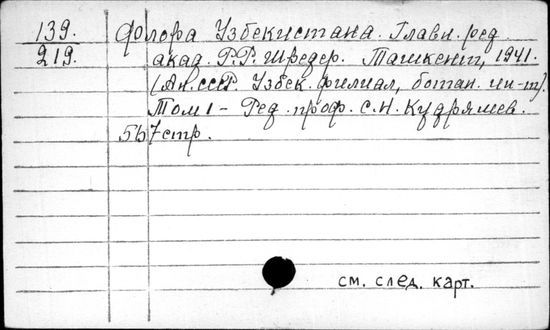 139. Флора Узбекистана. Главн. ред.
219. акад. Р.Р. Шредер. Ташкент, 1941.
(Ан. СССР. Узбек. филиал, ботан. ин-т).
Том 1 - Ред. проф. С.Н. Кудряшев.
567 стр.
см. след. карт.